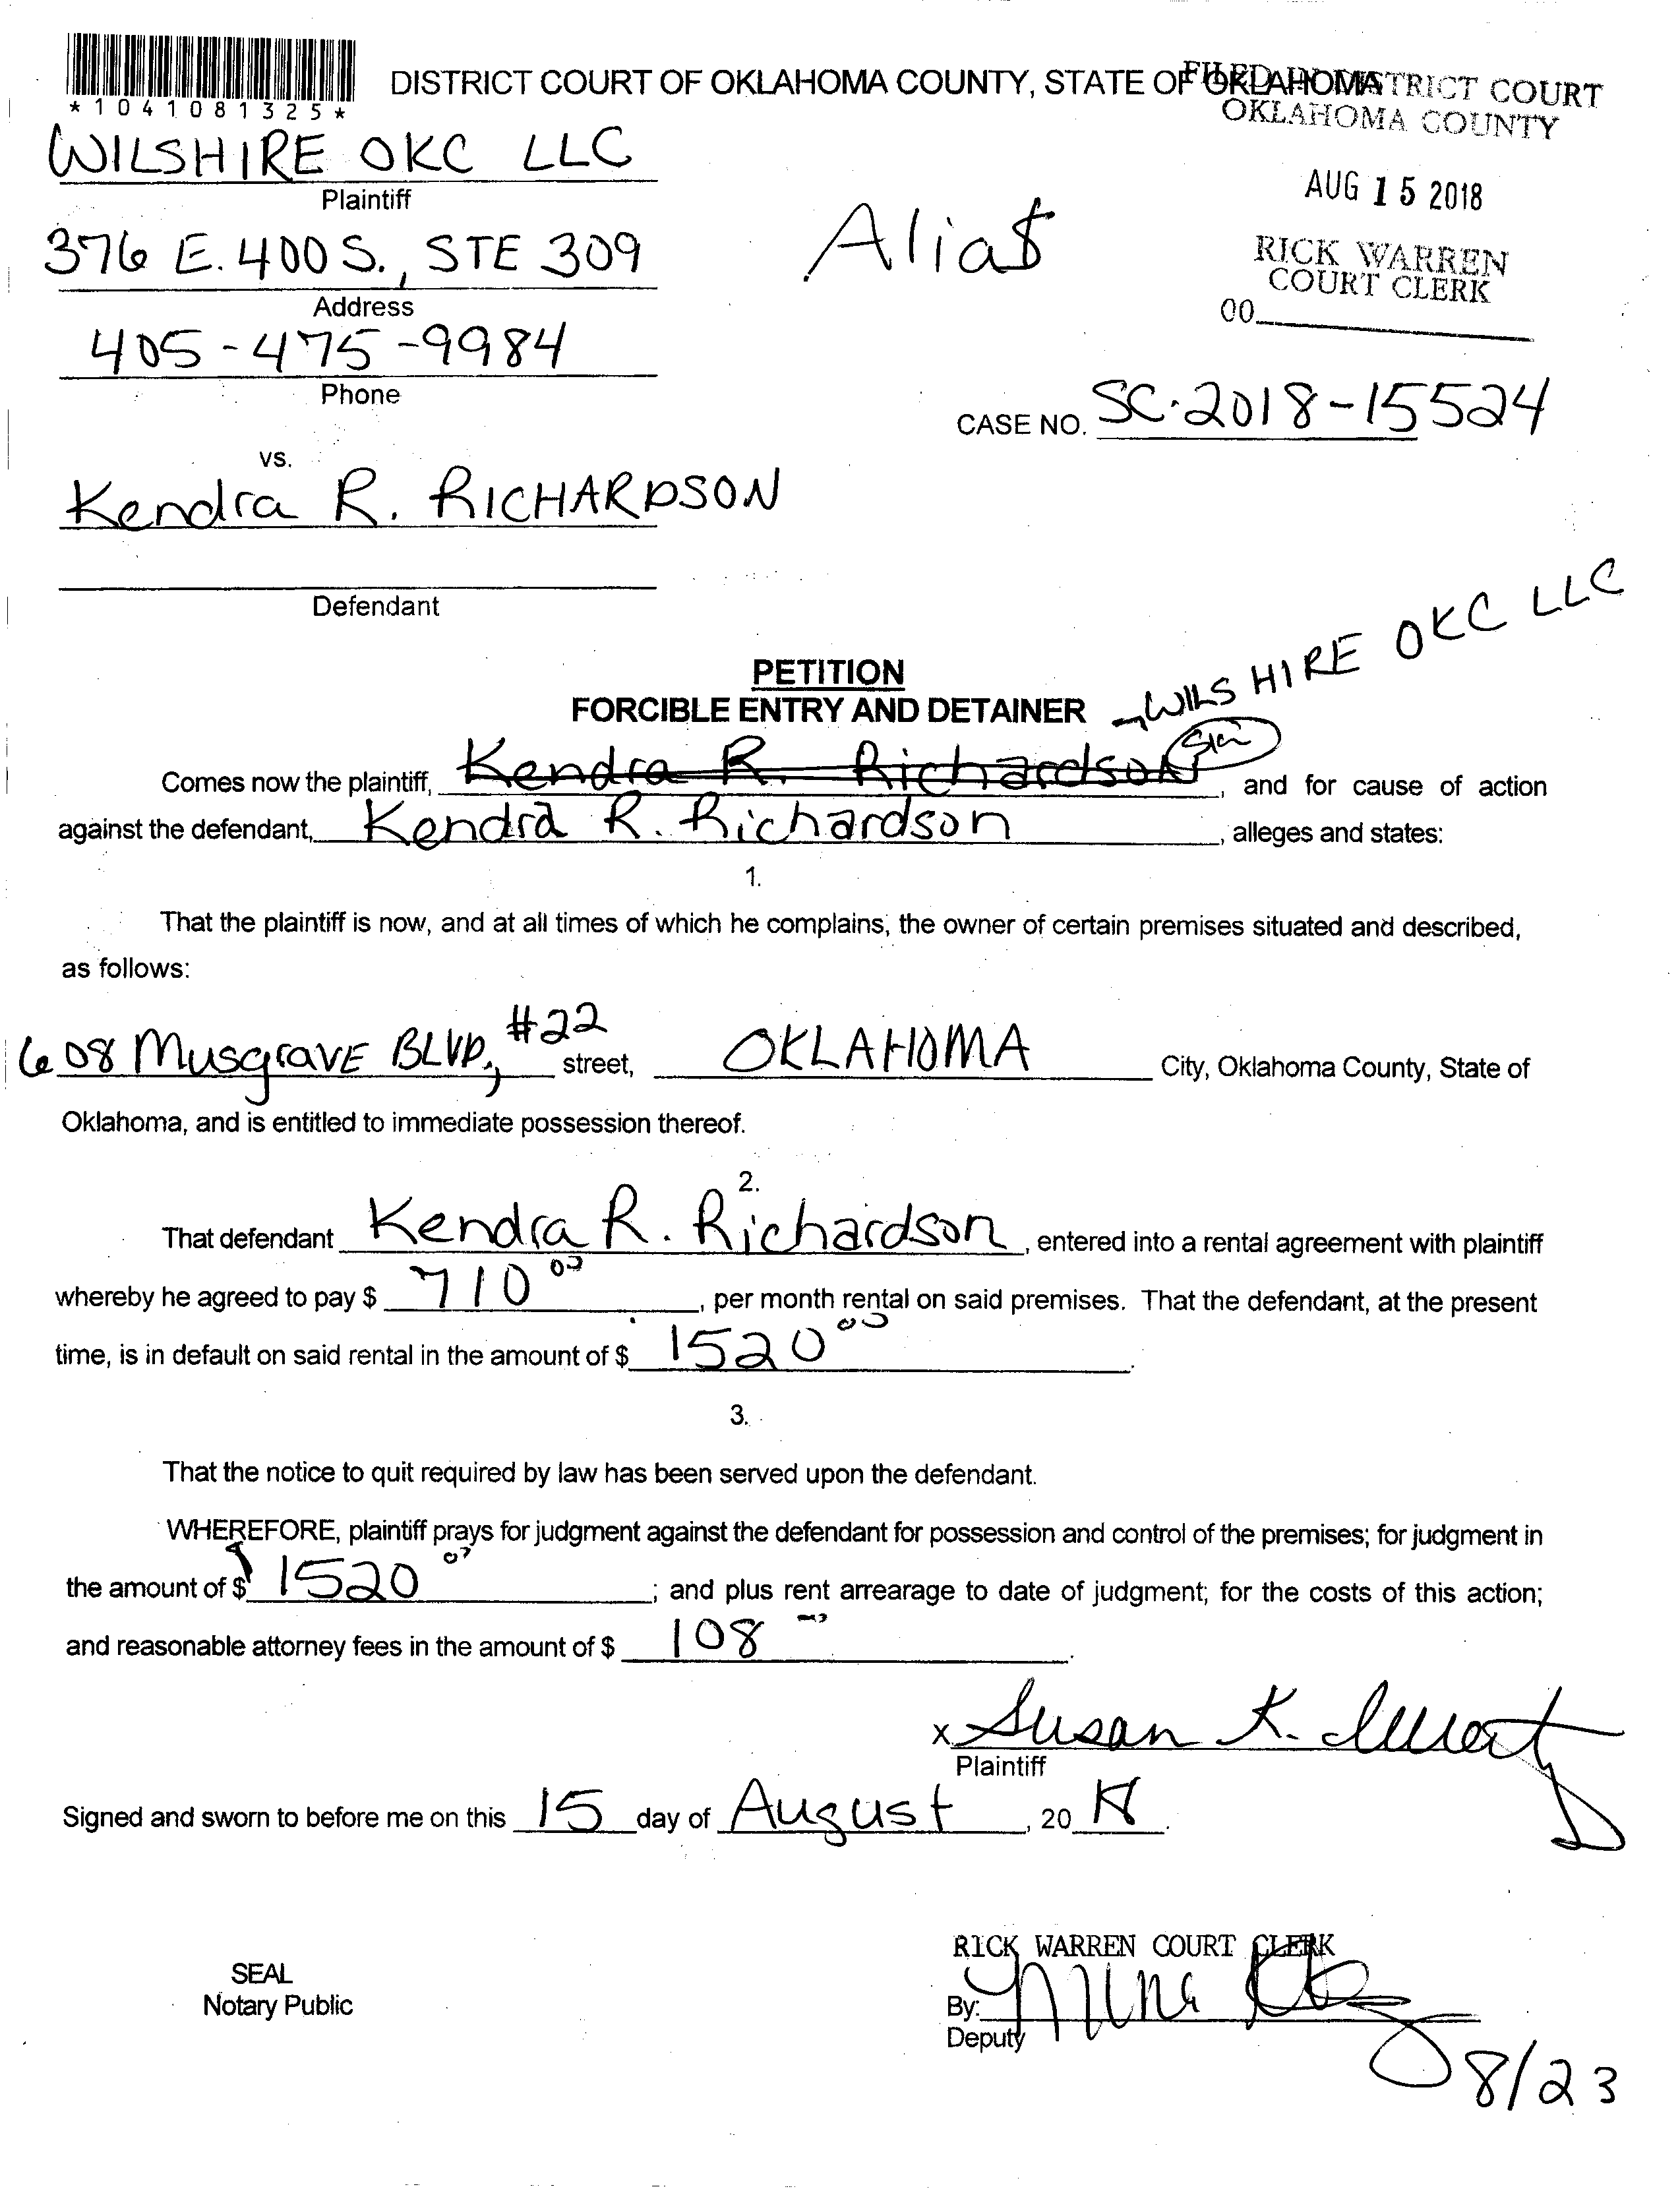 *1041081325*
DISTRICT COURT OF OKLAHOMA COUNTY, STATE OF OKLAHOMA
FILED IN DISTRICT COURT
OKLAHOMA COUNTY
WILSHIRE OKC LLC
Plaintiff
AUG 15 2018
376 E. 400 S., STE 309
Address
Alias
RICK WARREN
COURT CLERK
00
405-475-9984
Phone
CASE NO. SC-2018-15524
vs.
Kendra R. RICHARDSON
Defendant
PETITION
FORCIBLE ENTRY AND DETAINER
WILSHIRE OKC LLC
Comes now the plaintiff, Kendra R. Richardson, and for cause of action
against the defendant, Kendra R. Richardson, alleges and states:
1.
That the plaintiff is now, and at all times of which he complains, the owner of certain premises situated and described,
as follows:
608 MusgraVE BLVD, #22 street, OKLAHOMA City, Oklahoma County, State of
Oklahoma, and is entitled to immediate possession thereof.
2.
That defendant Kendra R. Richardson, entered into a rental agreement with plaintiff
whereby he agreed to pay $ 710 00, per month rental on said premises. That the defendant, at the present
time, is in default on said rental in the amount of $ 1520 00.
3.
That the notice to quit required by law has been served upon the defendant.
WHEREFORE, plaintiff prays for judgment against the defendant for possession and control of the premises; for judgment in
the amount of $ 1520 00; and plus rent arrearage to date of judgment; for the costs of this action;
and reasonable attorney fees in the amount of $ 108.
X Susan K.
Plaintiff
Signed and sworn to before me on this 15 day of August, 20 18.
RICK WARREN COURT CLERK
SEAL
Notary Public
By:
Deputy
8/23